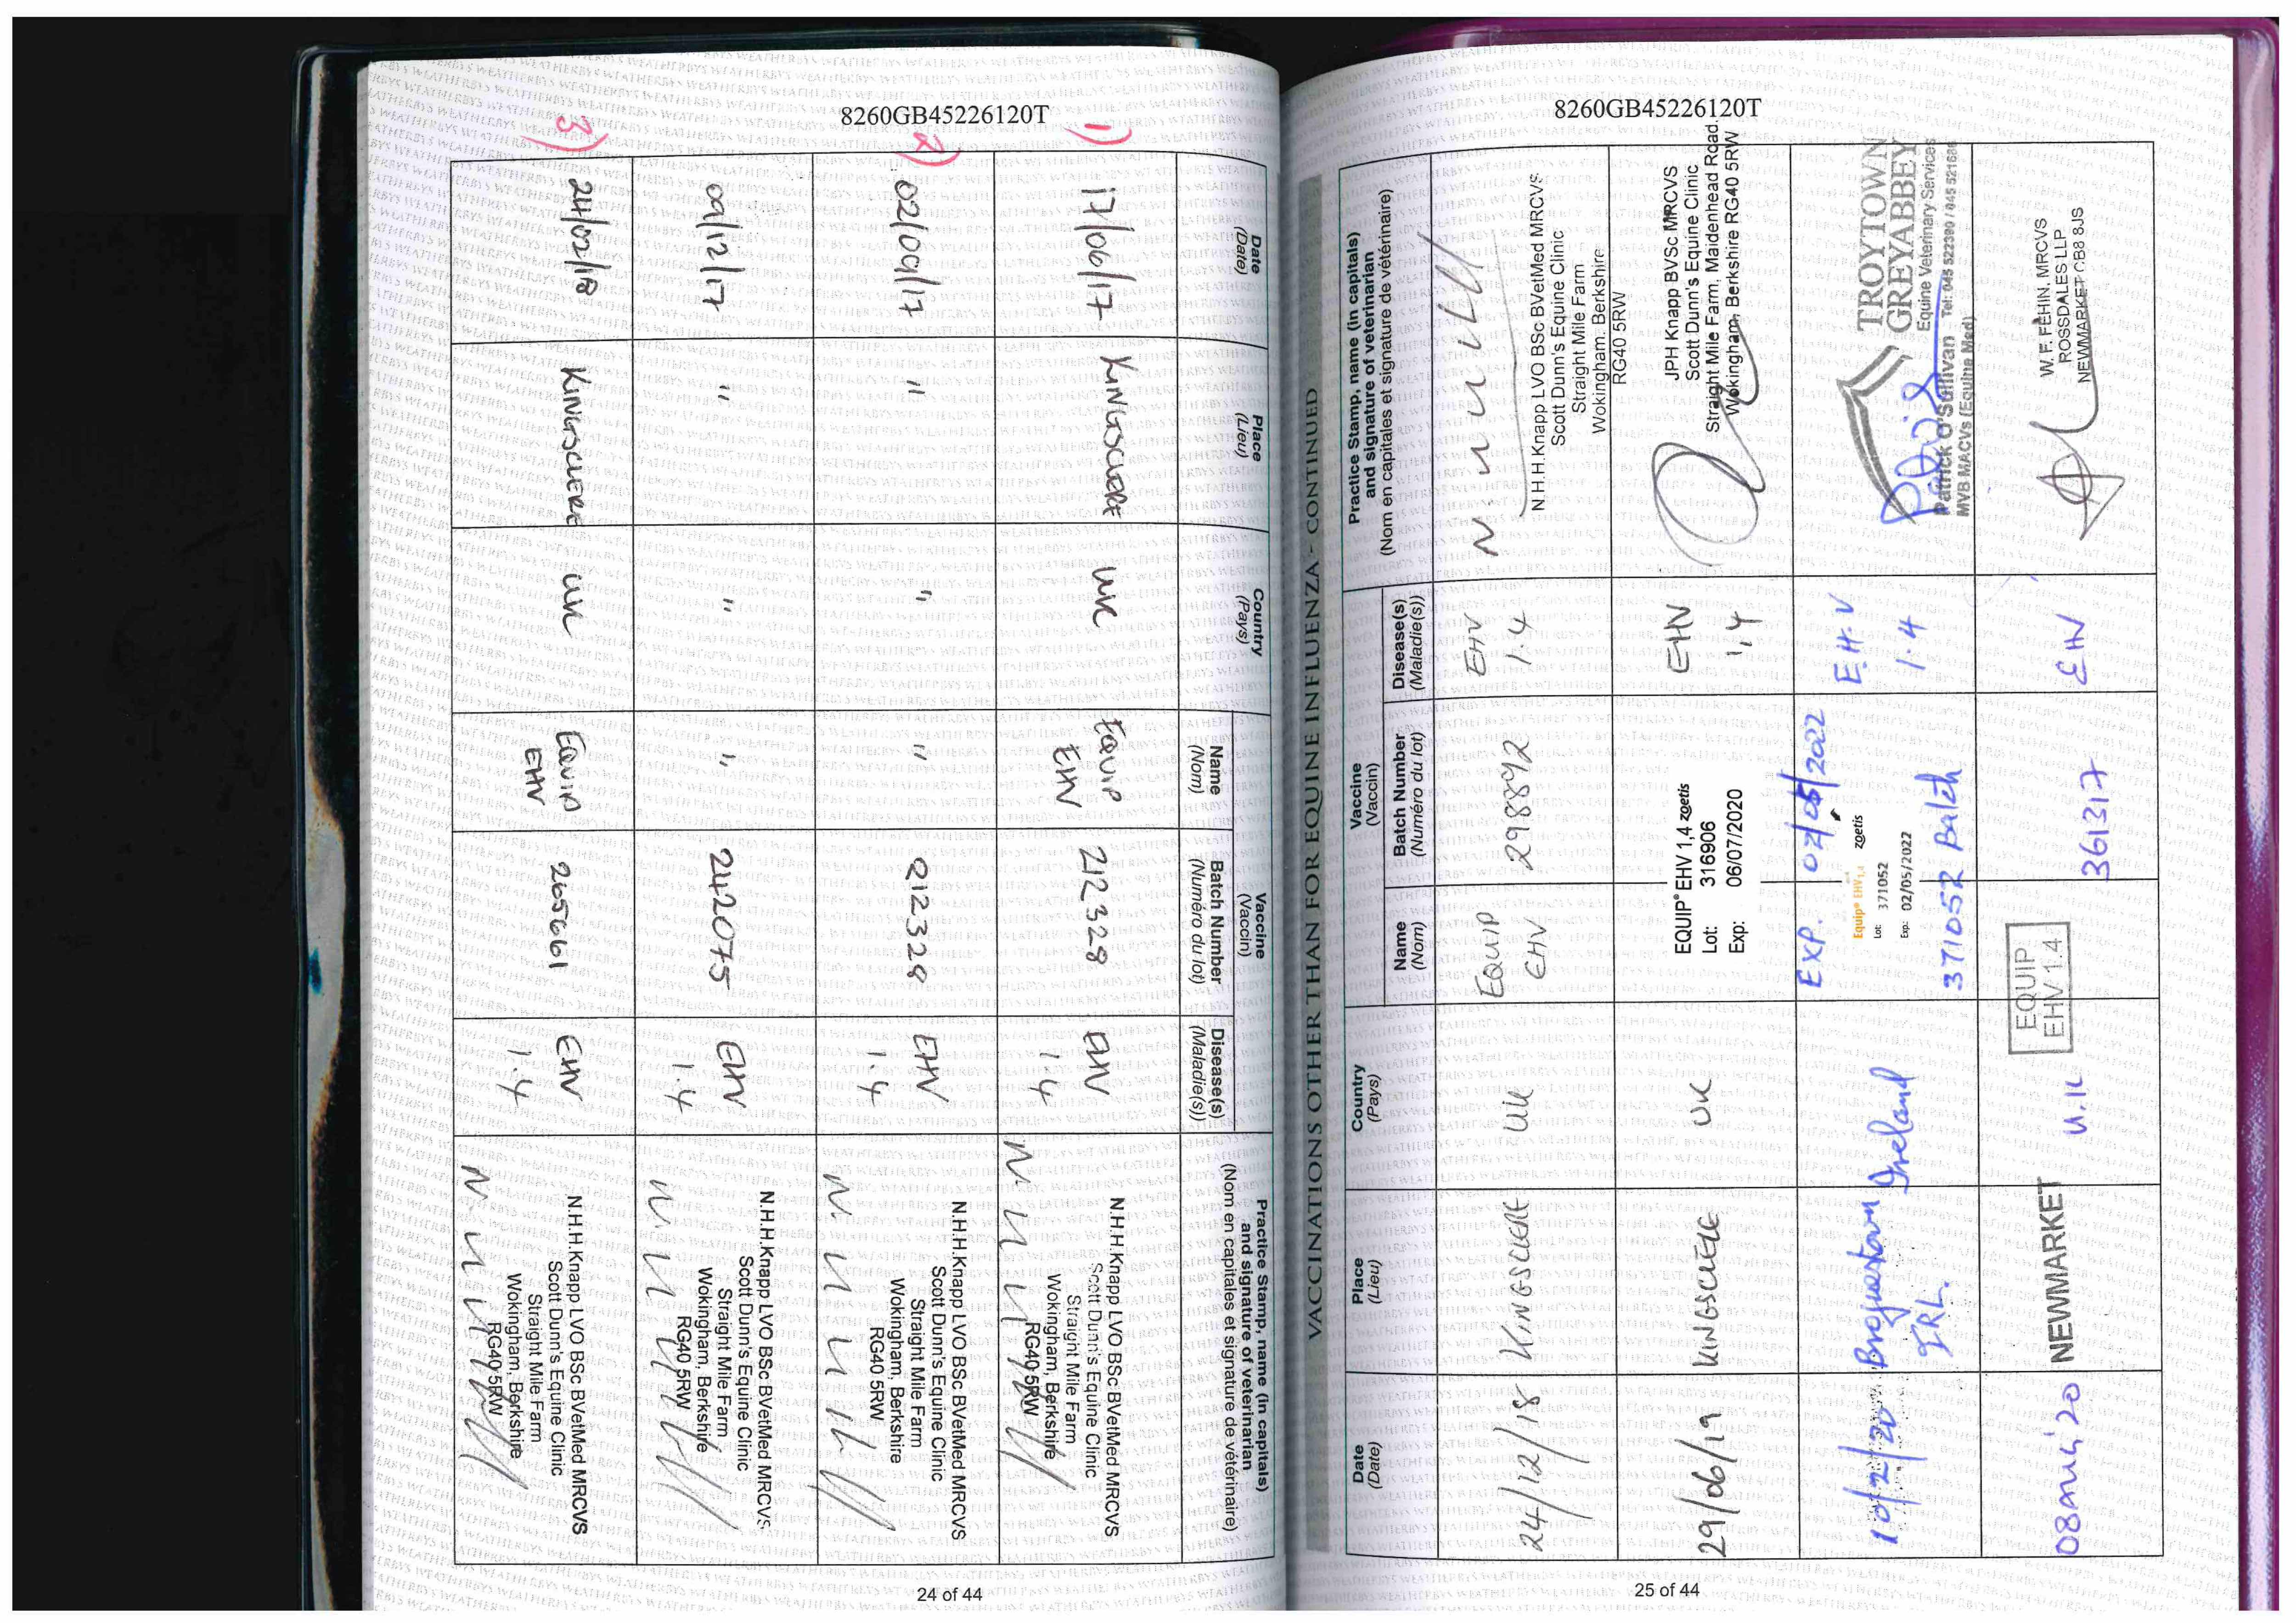 8260GB45226120T
1)
2)
3)
Date
(Date)
Place
(Lieu)
Country
(Pays)
Vaccine
(Vaccin)
Name
(Nom)
Batch Number
(Numéro du lot)
Disease(s)
(Maladie(s))
Practice Stamp, name (in capitals)
and signature of veterinarian
(Nom en capitales et signature de vétérinaire)
17/06/17
KINGSCLERE
UK
EQUIP
EHV
212328
EHV
1.4
N.H.H.Knapp LVO BSc BVetMed MRCVS
Scott Dunn's Equine Clinic
Straight Mile Farm
Wokingham, Berkshire
RG40 5RW
02/09/17
"
"
"
212328
EHV
1.4
N.H.H.Knapp LVO BSc BVetMed MRCVS
Scott Dunn's Equine Clinic
Straight Mile Farm
Wokingham, Berkshire
RG40 5RW
09/12/17
"
"
"
242075
EHV
1.4
N.H.H.Knapp LVO BSc BVetMed MRCVS
Scott Dunn's Equine Clinic
Straight Mile Farm
Wokingham, Berkshire
RG40 5RW
24/02/18
KINGSCLERE
UK
EQUIP
EHV
265661
EHV
1.4
N.H.H.Knapp LVO BSc BVetMed MRCVS
Scott Dunn's Equine Clinic
Straight Mile Farm
Wokingham, Berkshire
RG40 5RW
24 of 44
8260GB45226120T
VACCINATIONS OTHER THAN FOR EQUINE INFLUENZA - CONTINUED
Date
(Date)
Place
(Lieu)
Country
(Pays)
Vaccine
(Vaccin)
Name
(Nom)
Batch Number
(Numéro du lot)
Disease(s)
(Maladie(s))
Practice Stamp, name (in capitals)
and signature of veterinarian
(Nom en capitales et signature de vétérinaire)
24/12/18
KINGSCLERE
UK
EQUIP
EHV
298892
EHV
1.4
N.H.H.Knapp LVO BSc BVetMed MRCVS
Scott Dunn's Equine Clinic
Straight Mile Farm
Wokingham. Berkshire
RG40 5RW
29/06/19
KINGSCLERE
UK
EQUIP® EHV 1,4 zoetis
Lot: 316906
Exp: 06/07/2020
EHV
1,4
JPH Knapp BVSc MRCVS
Scott Dunn's Equine Clinic
Straight Mile Farm, Maidenhead Road
Wokingham, Berkshire RG40 5RW
10/2/20
IRL.
Ireland
EXP. 02/05/2022
Equip® EHV 1,4 zoetis
Lot: 371052
Exp: 02/05/2022
371052 Batch
E.H.V
1.4
TROYTOWN
GREYABBEY
Equine Veterinary Services
Tel: 045 522390 / 045 521686
Patrick O'Sullivan
MVB MACVs (Equine Med)
08 AUG 20
NEWMARKET
U.K
EQUIP
EHV 1.4
361317
EHV
W. F. FEHIN, MRCVS
ROSSDALES LLP
NEWMARKET CB8 8JS
25 of 44